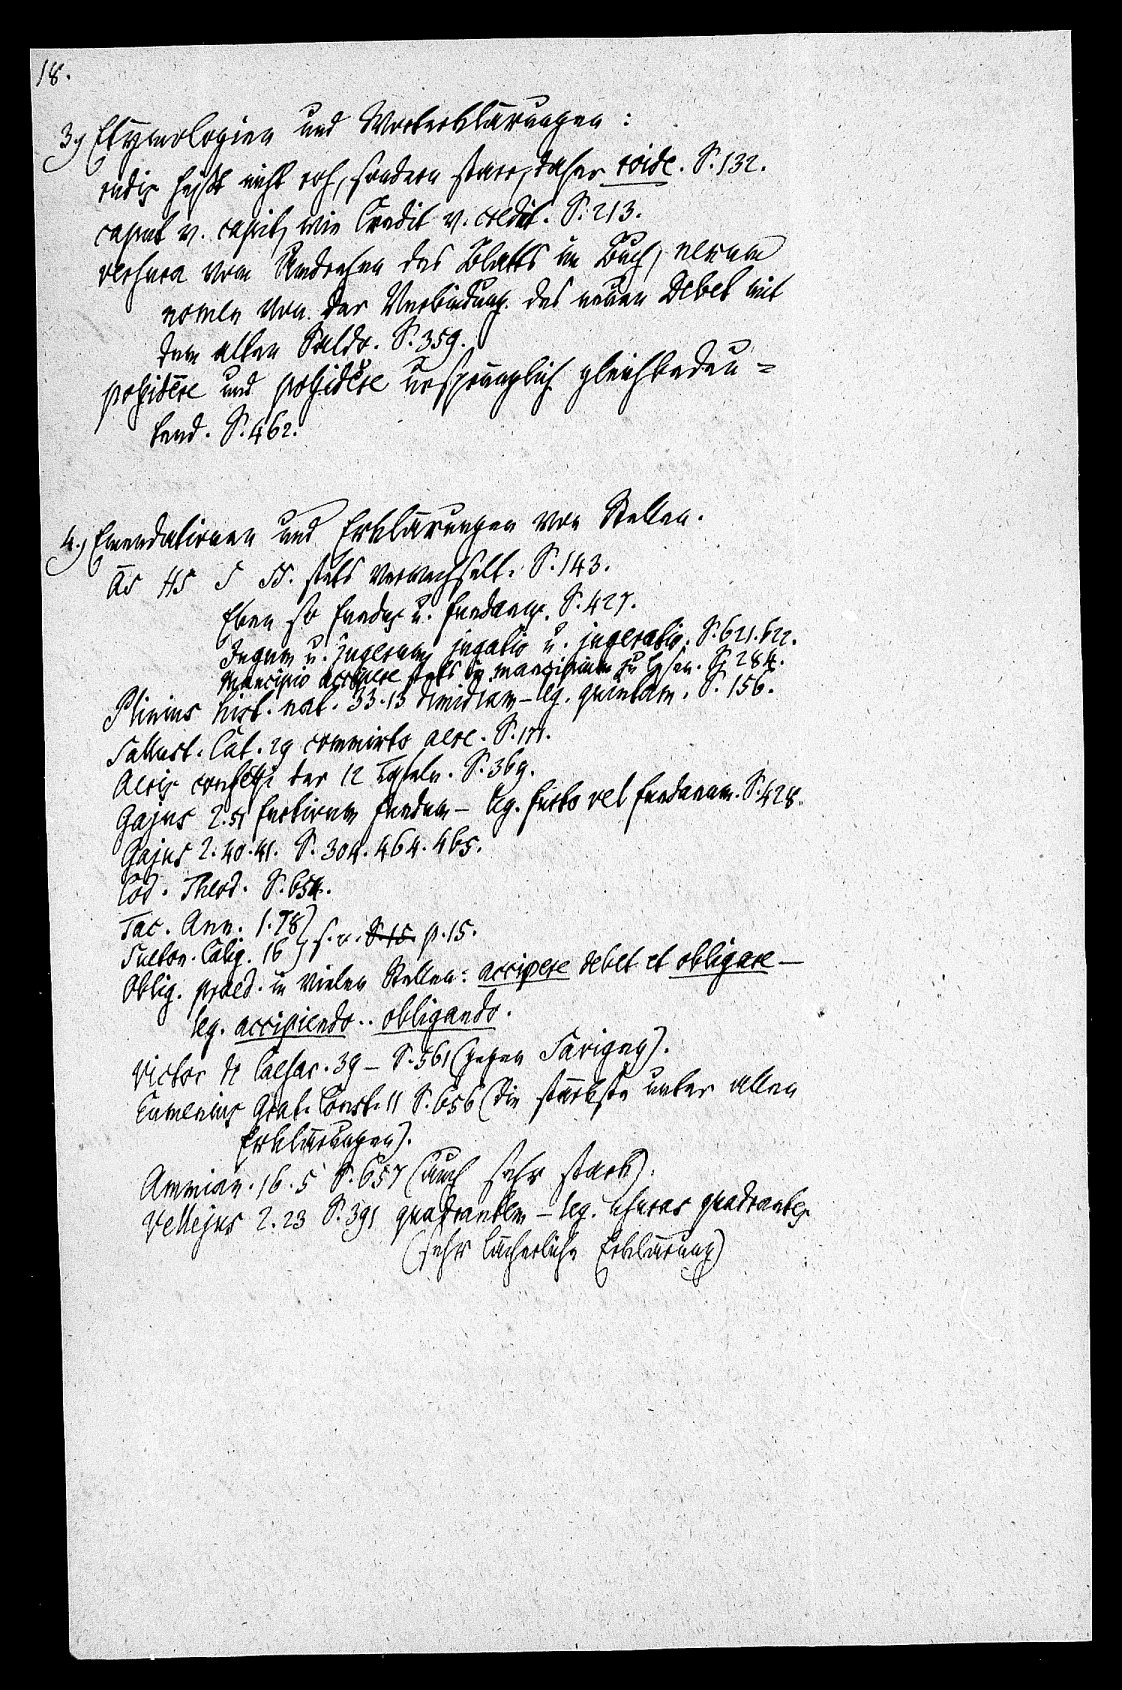 18.
3.) Etymologien und Worterklärungen:
rudis heißt nicht roh, sondern starr, daher roide. S. 132.
caput v. capit, wie Credit v. credit. S. 213.
versura vom Umdrehen des Blatts im Buch, nexum
nomen von der Verbindung des neuen Debet mit
dem alten Saldo. S. 359.
possidēre und possidĕre ursprünglich gleichbedeu=
tend. S. 462.
4.) Emendationen und Erklärungen von Stellen.
stets verwechselt. S. 143.
Eben so fundus u. fundanus. S. 427.
Jugum u. jugerum, jugatio u. jugeratio. S. 621. 622.
mancipio accipere stets in mancipium zu lesen. S. 284.
Plinius hist. nat. 33.13 dimidiam – leg. quintam. S. 156.
Sallust. Cat. 29 commixto aere. S. 171.
Aeris confessi der 12 Tafeln. S. 369.
Gajus 2.51 furtivum fundum – leg. furto vel fundanam. S. 428.
Gajus 2. 40. 41. S. 304. 464. 465.
Cod. Theod. S. 654.
Tac. Ann. 1.78
Sueton. Calig. 16 } s. o. S. 15. p. 15.
Oblig. praed. in vielen Stellen: accipere debet et obligare –
leg. accipiendo .. obligando.
Victor de Caesar. 39 – S. 561 (gegen Savigny).
Eumenius Grat. Const. 11 S. 656 (die stärkste unter allen
Erklärungen).
Ammian. 16.5 S. 657 (auch sehr stark).
Vellejus 2.23 S. 391 quadrantem – leg. usuras quadrantes
(sehr lächerliche Erklärung)